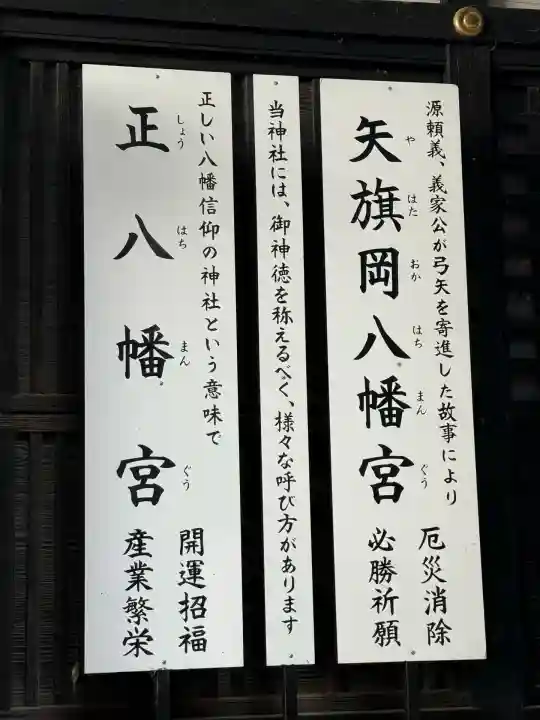 源頼義、義家公が弓矢を寄進した故事により
矢旗岡八幡宮
や はた おか はち まん ぐう
厄災消除
必勝祈願
当神社には、御神徳を称えるべく、様々な呼び方があります
正しい八幡信仰の神社という意味で
正八幡宮
しょう はち まん ぐう
開運招福
産業繁栄